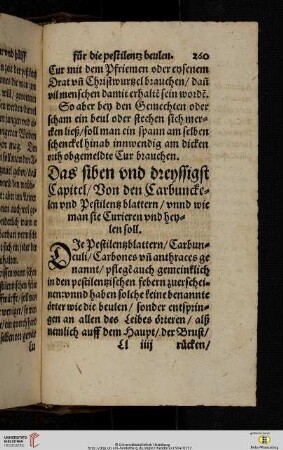 für die pestilentz beulen. 260
Cur mit dem Pfriemen oder eysenem
Drat vñ Christwurtzel brauchen/ dañ
vil menschen damit erhaltẽ sein wordẽ.
So aber bey den Gemechten oder
scham ein beul oder stechen sich mer-
cken ließ/ soll man ein spann am selben
schenckel hinab innwendig am dicken
orth obgemeldte Cur brauchen.
Das siben vnd dreyssigst
Capitel/ Von den Carbuncke-
len vnd Pestilentz blattern/ vnnd wie
man sie Curieren vnd hey-
len soll.
DIe Pestilentzblattern/ Carbun-
culi/ Carbones vñ anthraces ge
nannt/ pflegẽ auch gemeinklich
in den pestilentzischen febern zuerschei-
nen: vnnd haben solche keine benannte
örter wie die beulen/ sonder entsprin-
gen an allen des Leibes örteren/ alß
nemlich auff dem Haupt/ der Brust/
Ll iiij rücken/